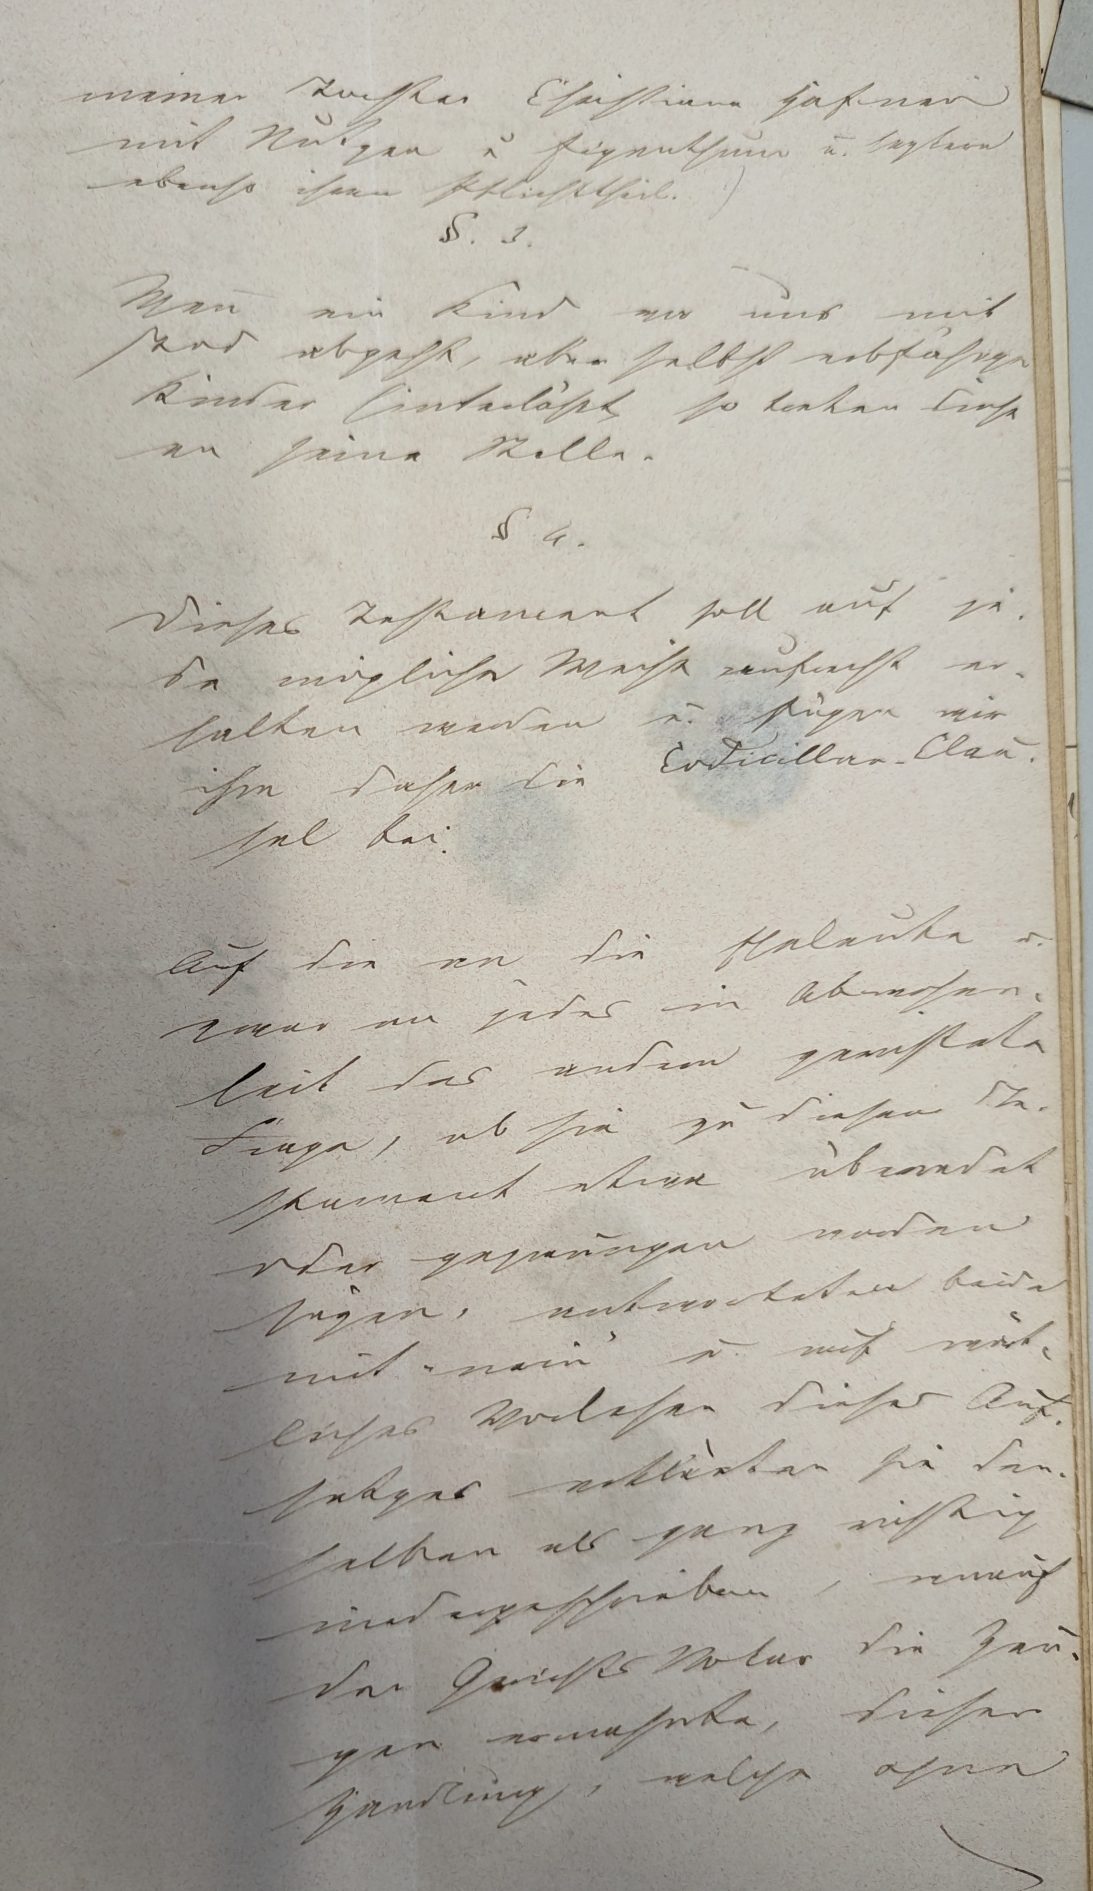 meiner Tochter Christiane Hafner
mit Nutzen u Eigenthum u. letztern
ebenso ihren Pflichttheil.)
§. 3.
Wenn ein Kind vor uns mit
Tod abgeht, aber selbst erbfähige
Kinder hinterläßt, so treten diese
an seine Stelle.
§ 4.
Dieses Testament soll auf je-
de mögliche Weise aufrecht er-
halten werden u. fügen wir
ihm daher die Codicillar-Clau-
sel bei.
Auf die an die Eheleute u.
zwar an jedes in Abwesen-
heit des andern gerichtete
Frage, ob sie zu diesem Te-
stament etwa überredet
oder gezwungen worden
seyen, antworteten beide
mit "nein" u. auf wört-
liches Vorlesen dieses Auf-
satzes erklärten sie den-
selben als ganz richtig
niedergeschrieben, worauf
der Gerichts Notar die Zeu-
gen ermahnte, dieser
Handlung, welche ohne